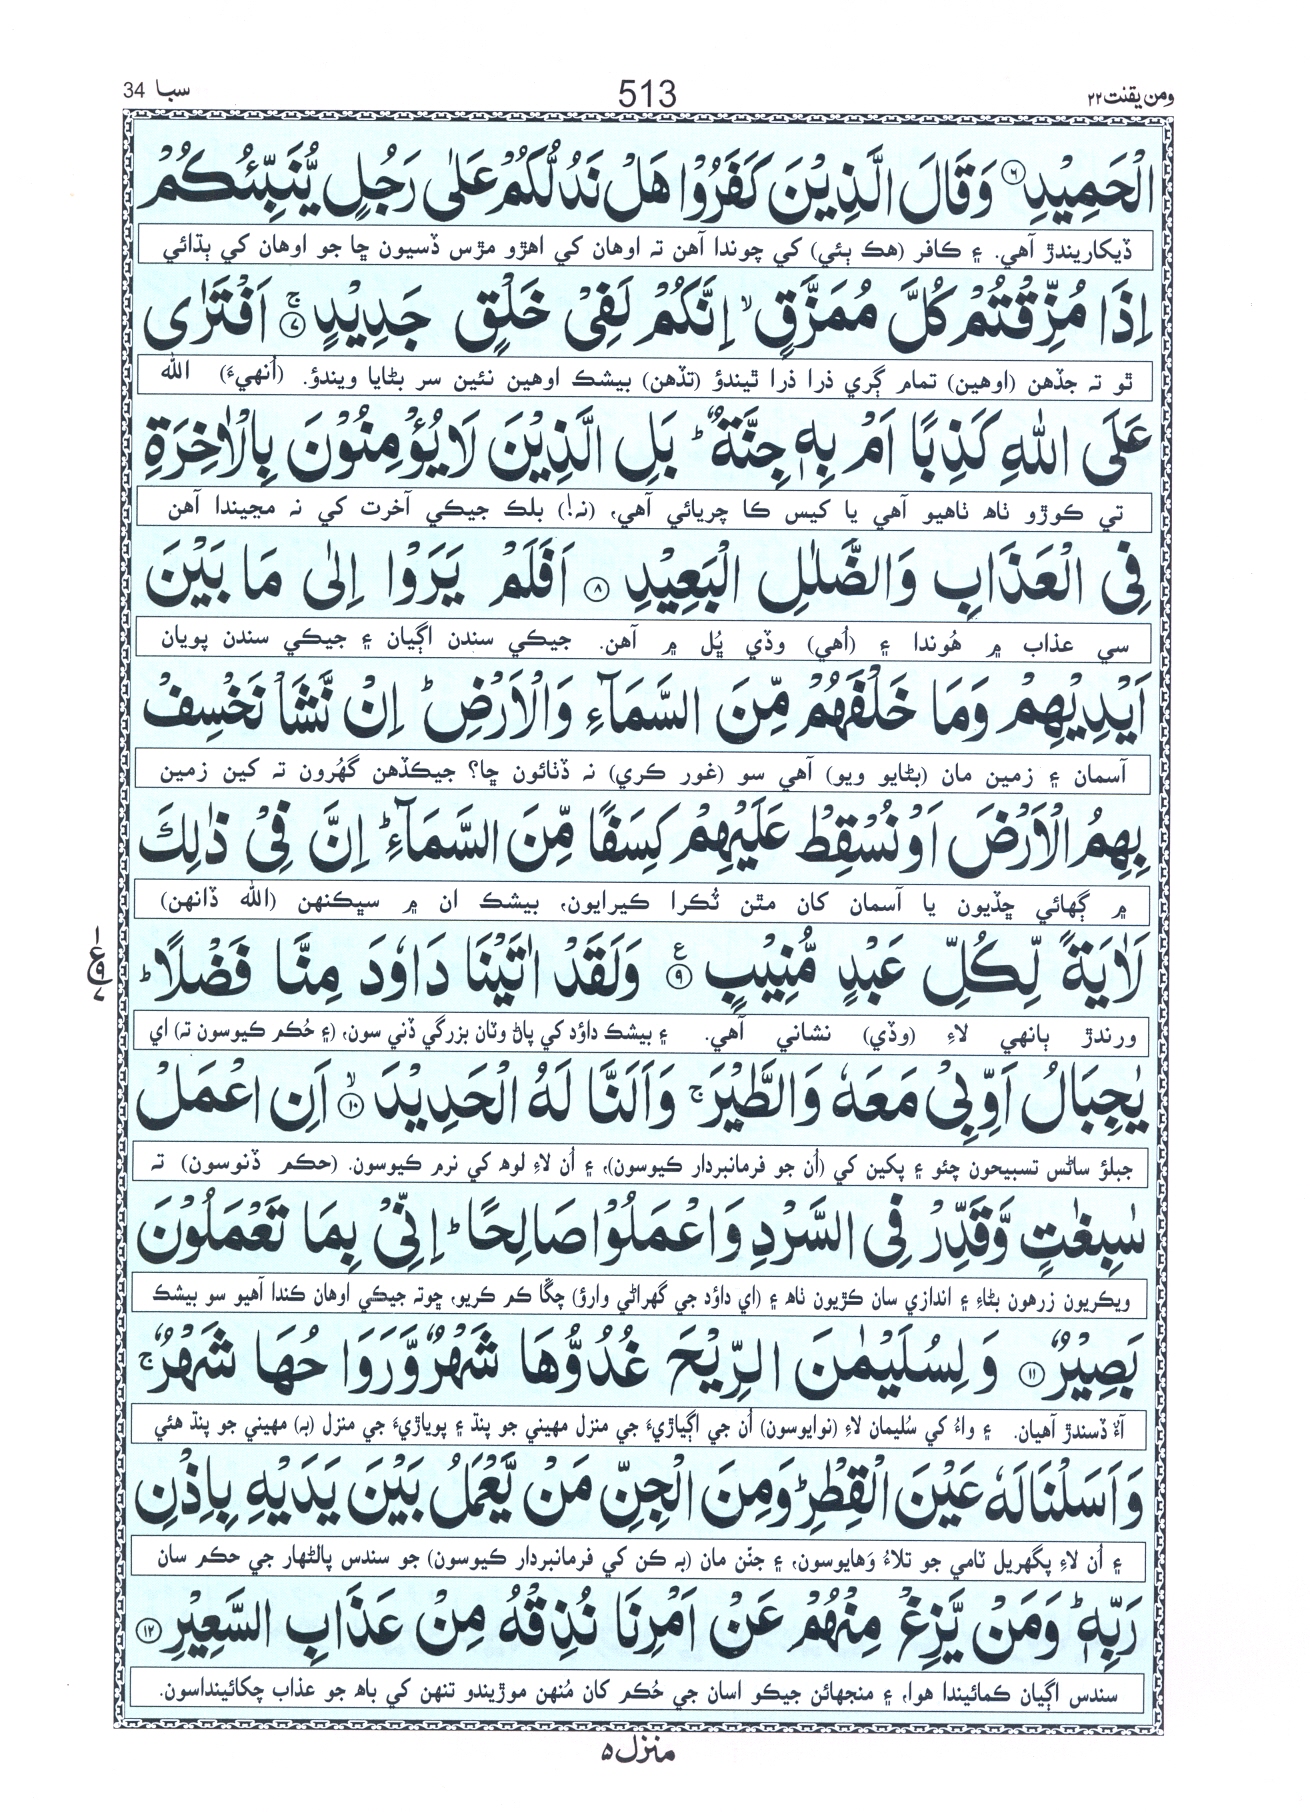 ومن يقنت ٢٢ 513 سبا 34
الْحَمِيْدِ ۶ وَقَالَ الَّذِيْنَ كَفَرُوْا هَلْ نَدُلُّكُمْ عَلٰى رَجُلٍ يُّنَبِّئُكُمْ
ڏيکاريندڙ آهي. ۽ ڪافر (هڪ ٻئي) کي چوندا آهن ته اوهان کي اهڙو مڙس ڏسيون ڇا جو اوهان کي ٻڌائي
اِذَا مُزِّقْتُمْ كُلَّ مُمَزَّقٍ ۙ اِنَّكُمْ لَفِيْ خَلْقٍ جَدِيْدٍ ۚ ۷ اَفْتَرٰى
ٿو ته جڏهن (اوهين) تمام ڳري ذرا ذرا ٿيندؤ (تڏهن) بيشڪ اوهين نئين سر بڻايا ويندؤ. (اُنهيءَ) الله
عَلَى اللّٰهِ كَذِبًا اَمْ بِهٖ جِنَّةٌ ؕ بَلِ الَّذِيْنَ لَا يُؤْمِنُوْنَ بِالْاٰخِرَةِ
تي ڪوڙو ٺاھ ٺاهيو آهي يا کيس ڪا چريائي آهي، (نه!) بلڪ جيڪي آخرت کي نه مڃيندا آهن
فِي الْعَذَابِ وَالضَّلٰلِ الْبَعِيْدِ ۸ اَفَلَمْ يَرَوْا اِلٰى مَا بَيْنَ
سي عذاب ۾ هُوندا ۽ (اُهي) وڏي ڀُل ۾ آهن. جيڪي سندن اڳيان ۽ جيڪي سندن پويان
اَيْدِيْهِمْ وَمَا خَلْفَهُمْ مِّنَ السَّمَآءِ وَالْاَرْضِ ؕ اِنْ نَّشَاْ نَخْسِفْ
آسمان ۽ زمين مان (بڻايو ويو) آهي سو (غور ڪري) نه ڏٺائون ڇا؟ جيڪڏهن گهُرون ته کين زمين
بِهِمُ الْاَرْضَ اَوْ نُسْقِطْ عَلَيْهِمْ كِسَفًا مِّنَ السَّمَآءِ ؕ اِنَّ فِيْ ذٰلِكَ
۾ ڳهائي ڇڏيون يا آسمان کان مٿن ٽُڪرا ڪيرايون، بيشڪ ان ۾ سڀڪنهن (الله ڏانهن)
لَاٰيَةً لِّكُلِّ عَبْدٍ مُّنِيْبٍ ۧ ۹ وَلَقَدْ اٰتَيْنَا دَاوٗدَ مِنَّا فَضْلًا ؕ
ورندڙ ٻانهي لاءِ (وڏي) نشاني آهي. ۽ بيشڪ داؤد کي پاڻ وٽان بزرگي ڏني سون، (۽ حُڪم ڪيوسون ته) اي
يٰجِبَالُ اَوِّبِيْ مَعَهٗ وَالطَّيْرَ ۚ وَاَلَنَّا لَهُ الْحَدِيْدَ ۙ ۱۰ اَنِ اعْمَلْ
جبلؤ ساڻس تسبيحون چئو ۽ پکين کي (اُن جو فرمانبردار ڪيوسون)، ۽ اُن لاءِ لوھ کي نرم ڪيوسون. (حڪم ڏنوسون) ته
سٰبِغٰتٍ وَّقَدِّرْ فِي السَّرْدِ وَاعْمَلُوْا صَالِحًا ؕ اِنِّيْ بِمَا تَعْمَلُوْنَ
ويڪريون زرهون بڻاءِ ۽ اندازي سان ڪڙيون ٺاھ ۽ (اي داؤد جي گهراڻي وارؤ) چڱا ڪم ڪريو، ڇوته جيڪي اوهان ڪندا آهيو سو بيشڪ
بَصِيْرٌ ۱۱ وَلِسُلَيْمٰنَ الرِّيْحَ غُدُوُّهَا شَهْرٌ وَّرَوَاحُهَا شَهْرٌ ۚ
آءٌ ڏسندڙ آهيان. ۽ واءُ کي سُليمان لاءِ (نوايوسون) اُن جي اڳياڙيءَ جي منزل مهيني جو پنڌ ۽ پوياڙيءَ جي منزل (به) مهيني جو پنڌ هئي
وَاَسَلْنَا لَهٗ عَيْنَ الْقِطْرِ ؕ وَمِنَ الْجِنِّ مَنْ يَّعْمَلُ بَيْنَ يَدَيْهِ بِاِذْنِ
۽ اُن لاءِ پگهريل ٽامي جو تلاءُ وَهايوسون، ۽ جنّن مان (به ڪن کي فرمانبردار ڪيوسون) جو سندس پالڻهار جي حڪم سان
رَبِّهٖ ؕ وَمَنْ يَّزِغْ مِنْهُمْ عَنْ اَمْرِنَا نُذِقْهُ مِنْ عَذَابِ السَّعِيْرِ ۱۲
سندس اڳيان ڪمائيندا هوا، ۽ منجهائن جيڪو اسان جي حُڪم کان مُنهن موڙيندو تنهن کي باھ جو عذاب چکائينداسون.
منزل ۵